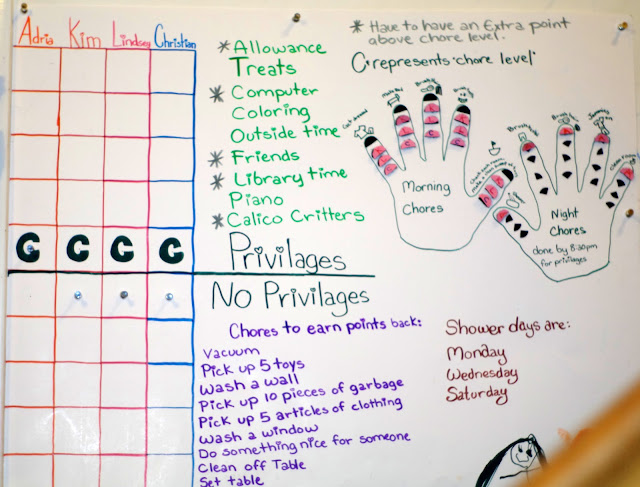 Adria Kim Lindsey Christian
* Allowance
Treats
* Computer
Coloring
Outside time
* Friends
* Library time
Piano
* Calico Critters
C C C C
Privilages
No Privilages
* Have to have an Extra point
above chore level.
C represents 'chore level'
Morning
Chores
Night
Chores
done by 8:30pm
for privilages
Chores to earn points back:
Vacuum
Pick up 5 toys
Wash a wall
Pick up 10 pieces of garbage
Pick up 5 articles of clothing
Wash a window
Do something nice for someone
Clean off Table
Set table
Shower days are:
Monday
Wednesday
Saturday